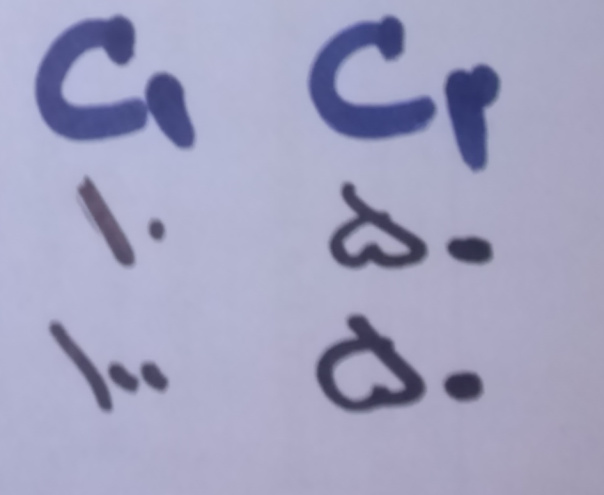 C₁ C₂
۱۰ ۵۰
۱۰۰ ۵۰